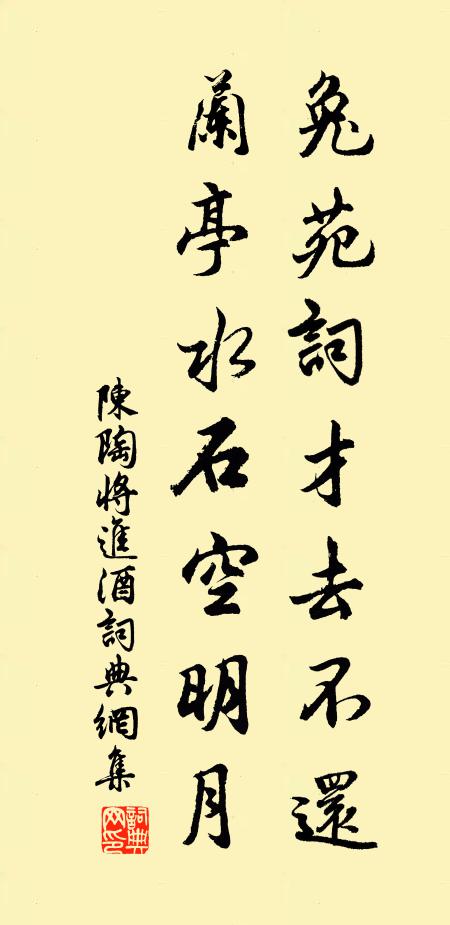 兔苑詞才去不還
蘭亭水石空明月
陳陶將進酒詞典網集
詞典網印